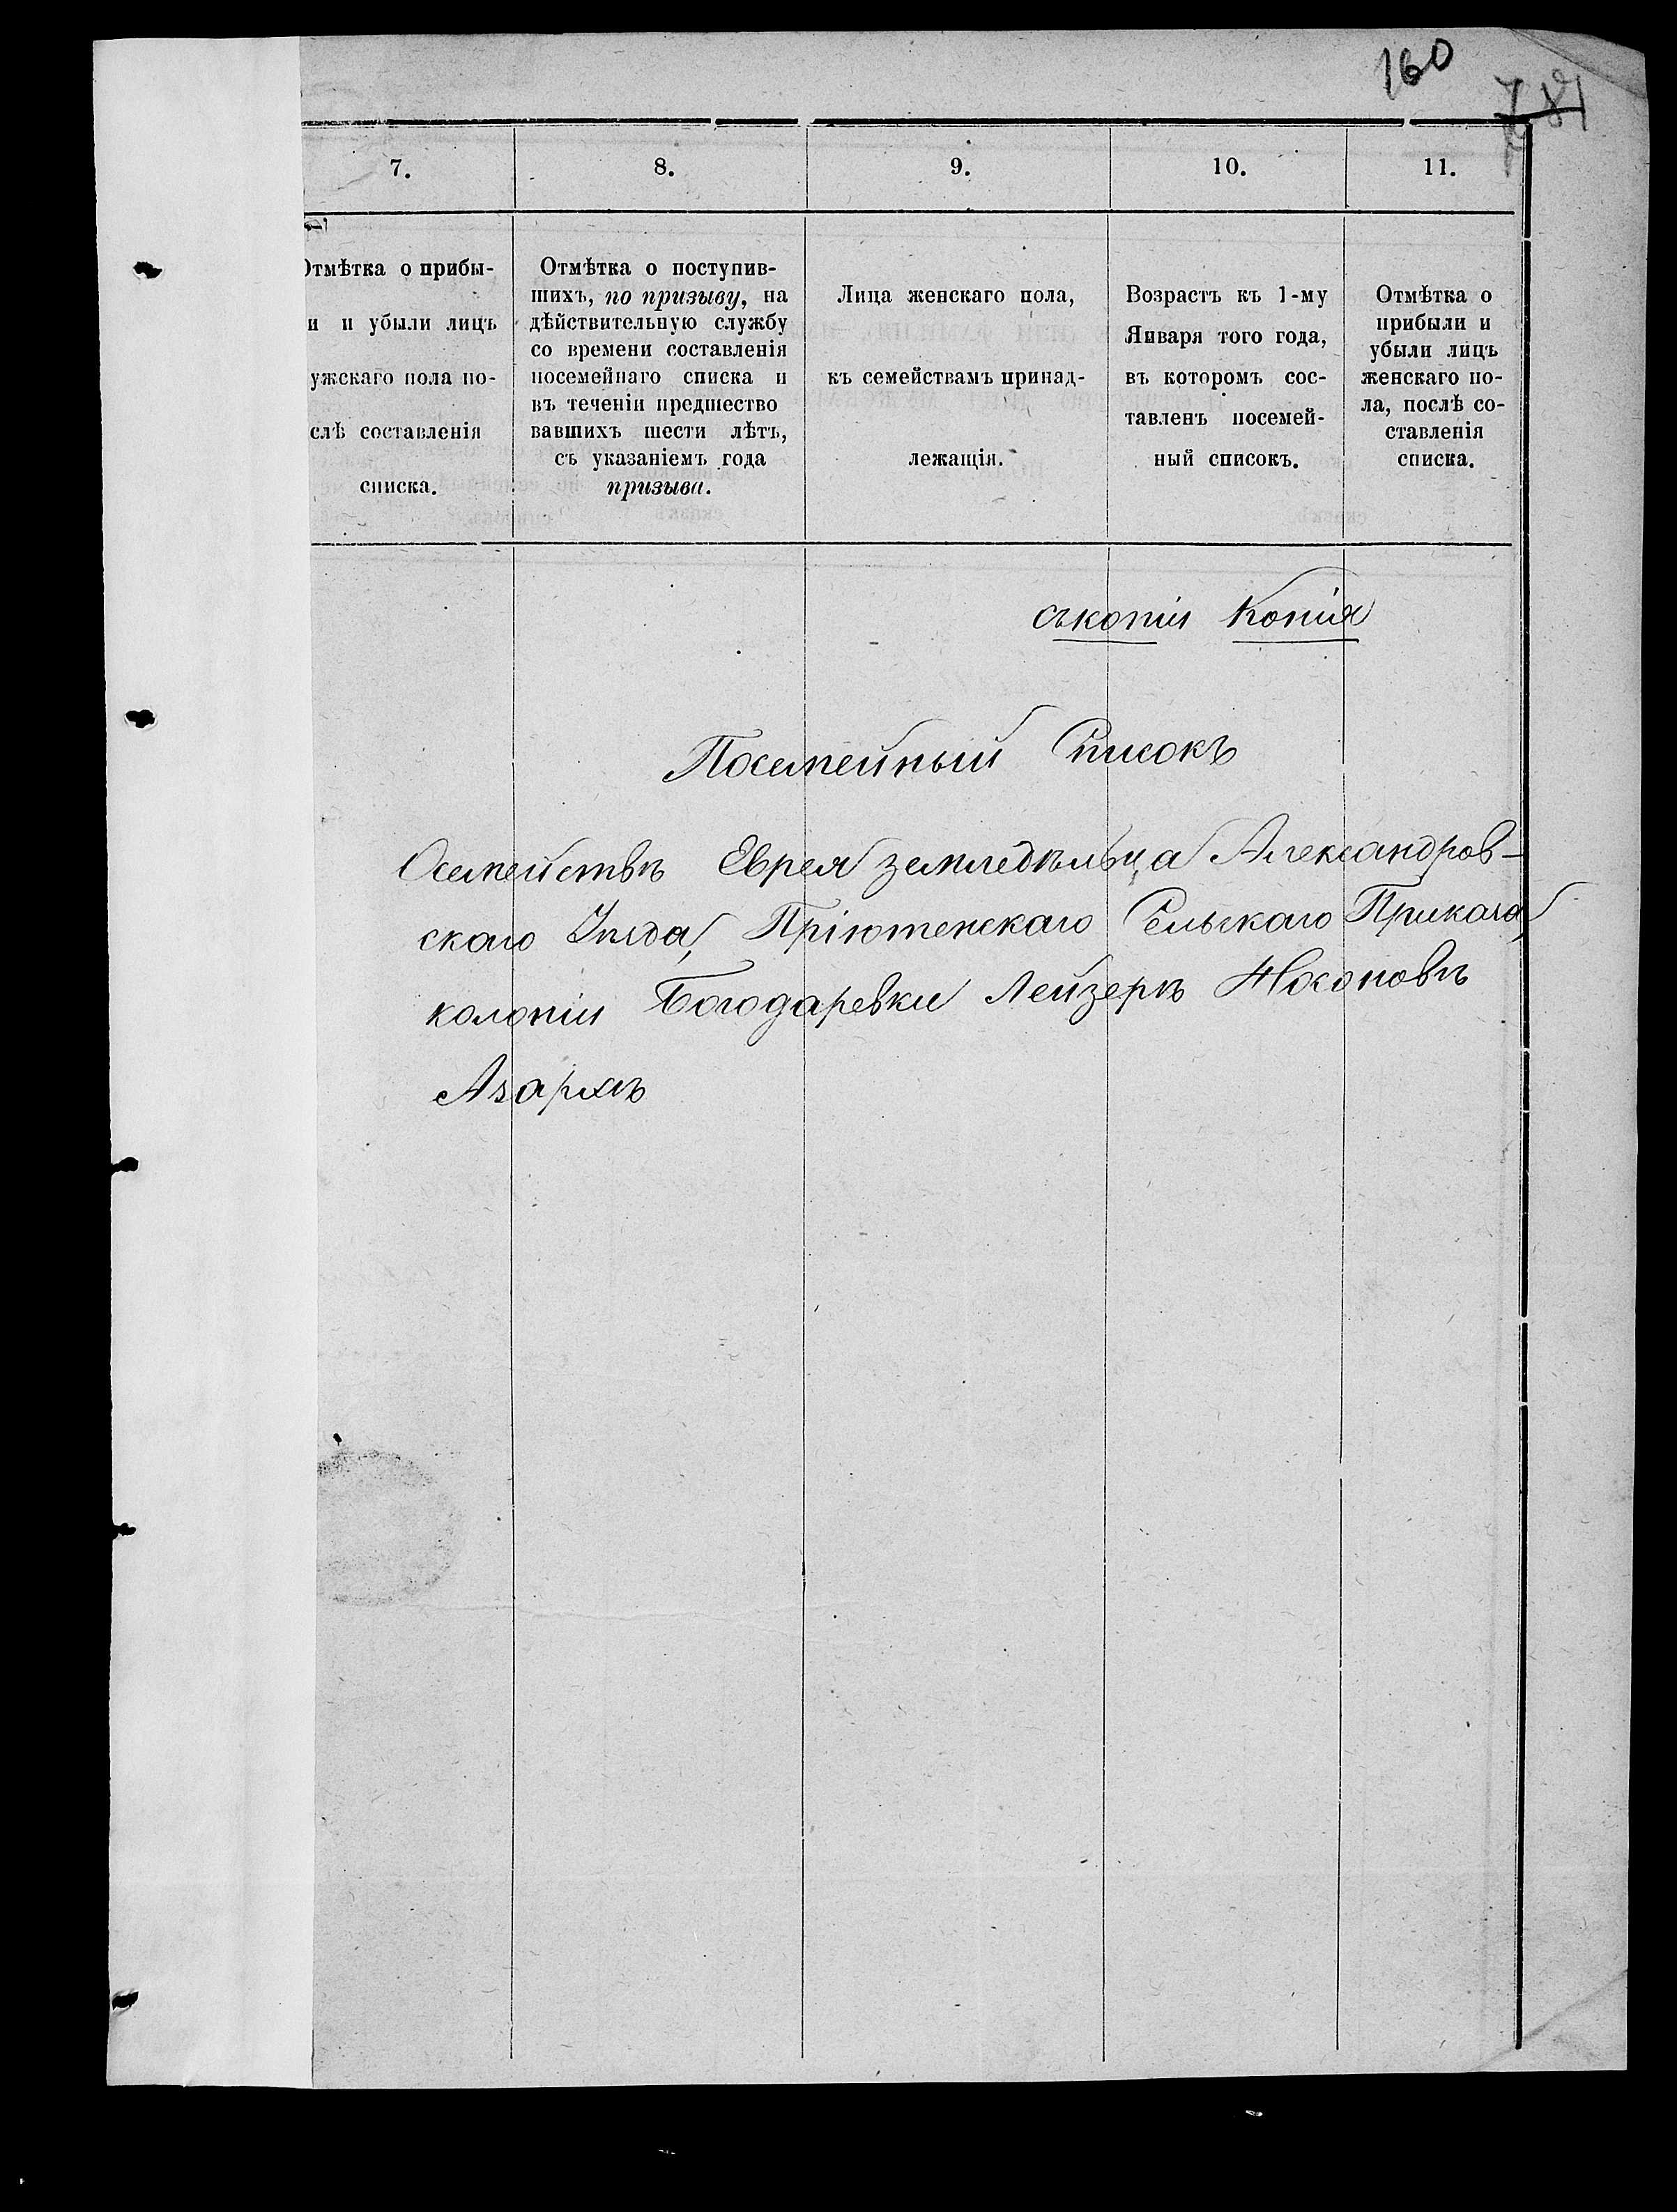 160
7. 8. 9. 10. 11.
Отмѣтка о прибы-
и и убыли лицъ
ужскаго пола по-
слѣ составленія
списка.
Отмѣтка о поступив-
шихъ, по призыву, на
дѣйствительную службу
со времени составленія
посемейнаго списка и
въ теченіи предшество
вавшихъ шести лѣтъ,
съ указаніемъ года
призыва.
Лица женскаго пола,
къ семействамъ принад-
лежащія.
Возрастъ къ 1-му
Января того года,
въ которомъ сос-
тавленъ посемей-
ный списокъ.
Отмѣтка о
прибыли и
убыли лицъ
женскаго по-
ла, послѣ со-
ставленія
списка.
съкопіи Копія
Посемейный Списокъ
Осемействѣ Еврея земледѣльца Александров-
скаго Уѣзда, Пріютенскаго Сельскаго Приказа,
колоніи Богодаревки Лейзерѣ Носоновѣ
Азархъ